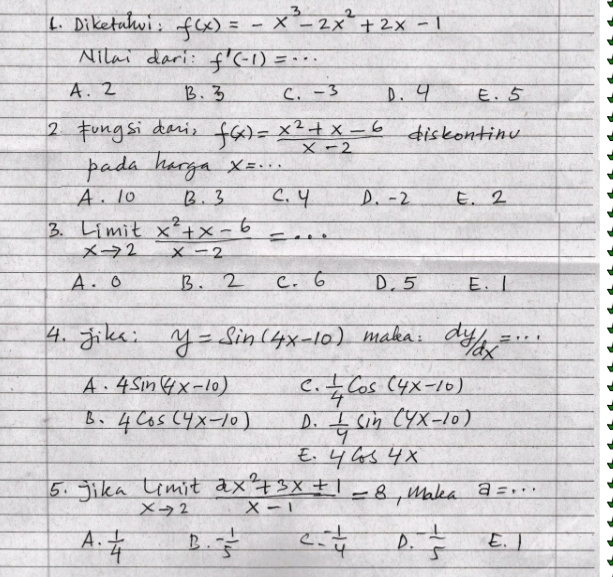 1. Diketahui: f(x) = - x³ - 2x² + 2x - 1
Nilai dari: f'(-1) = ...
A. 2 B. 3 C. -3 D. 4 E. 5
2 Fungsi dari, f(x) = (x² + x - 6)/(x - 2) diskontinu
pada harga x = ...
A. 10 B. 3 C. 4 D. -2 E. 2
3. Limit x→2 (x² + x - 6)/(x - 2) = ...
A. 0 B. 2 C. 6 D. 5 E. 1
4. jika: y = Sin (4x-10) maka: dy/dx = ...
A. 4 Sin (4x-10) C. 1/4 Cos (4x-10)
B. 4 Cos (4x-10) D. 1/4 Sin (4x-10)
E. 4 Cos 4x
5. jika Limit x→2 (ax² + 3x + 1)/(x - 1) = 8, maka a = ...
A. 1/4 B. -1/5 C. -1/4 D. -1/5 E. 1